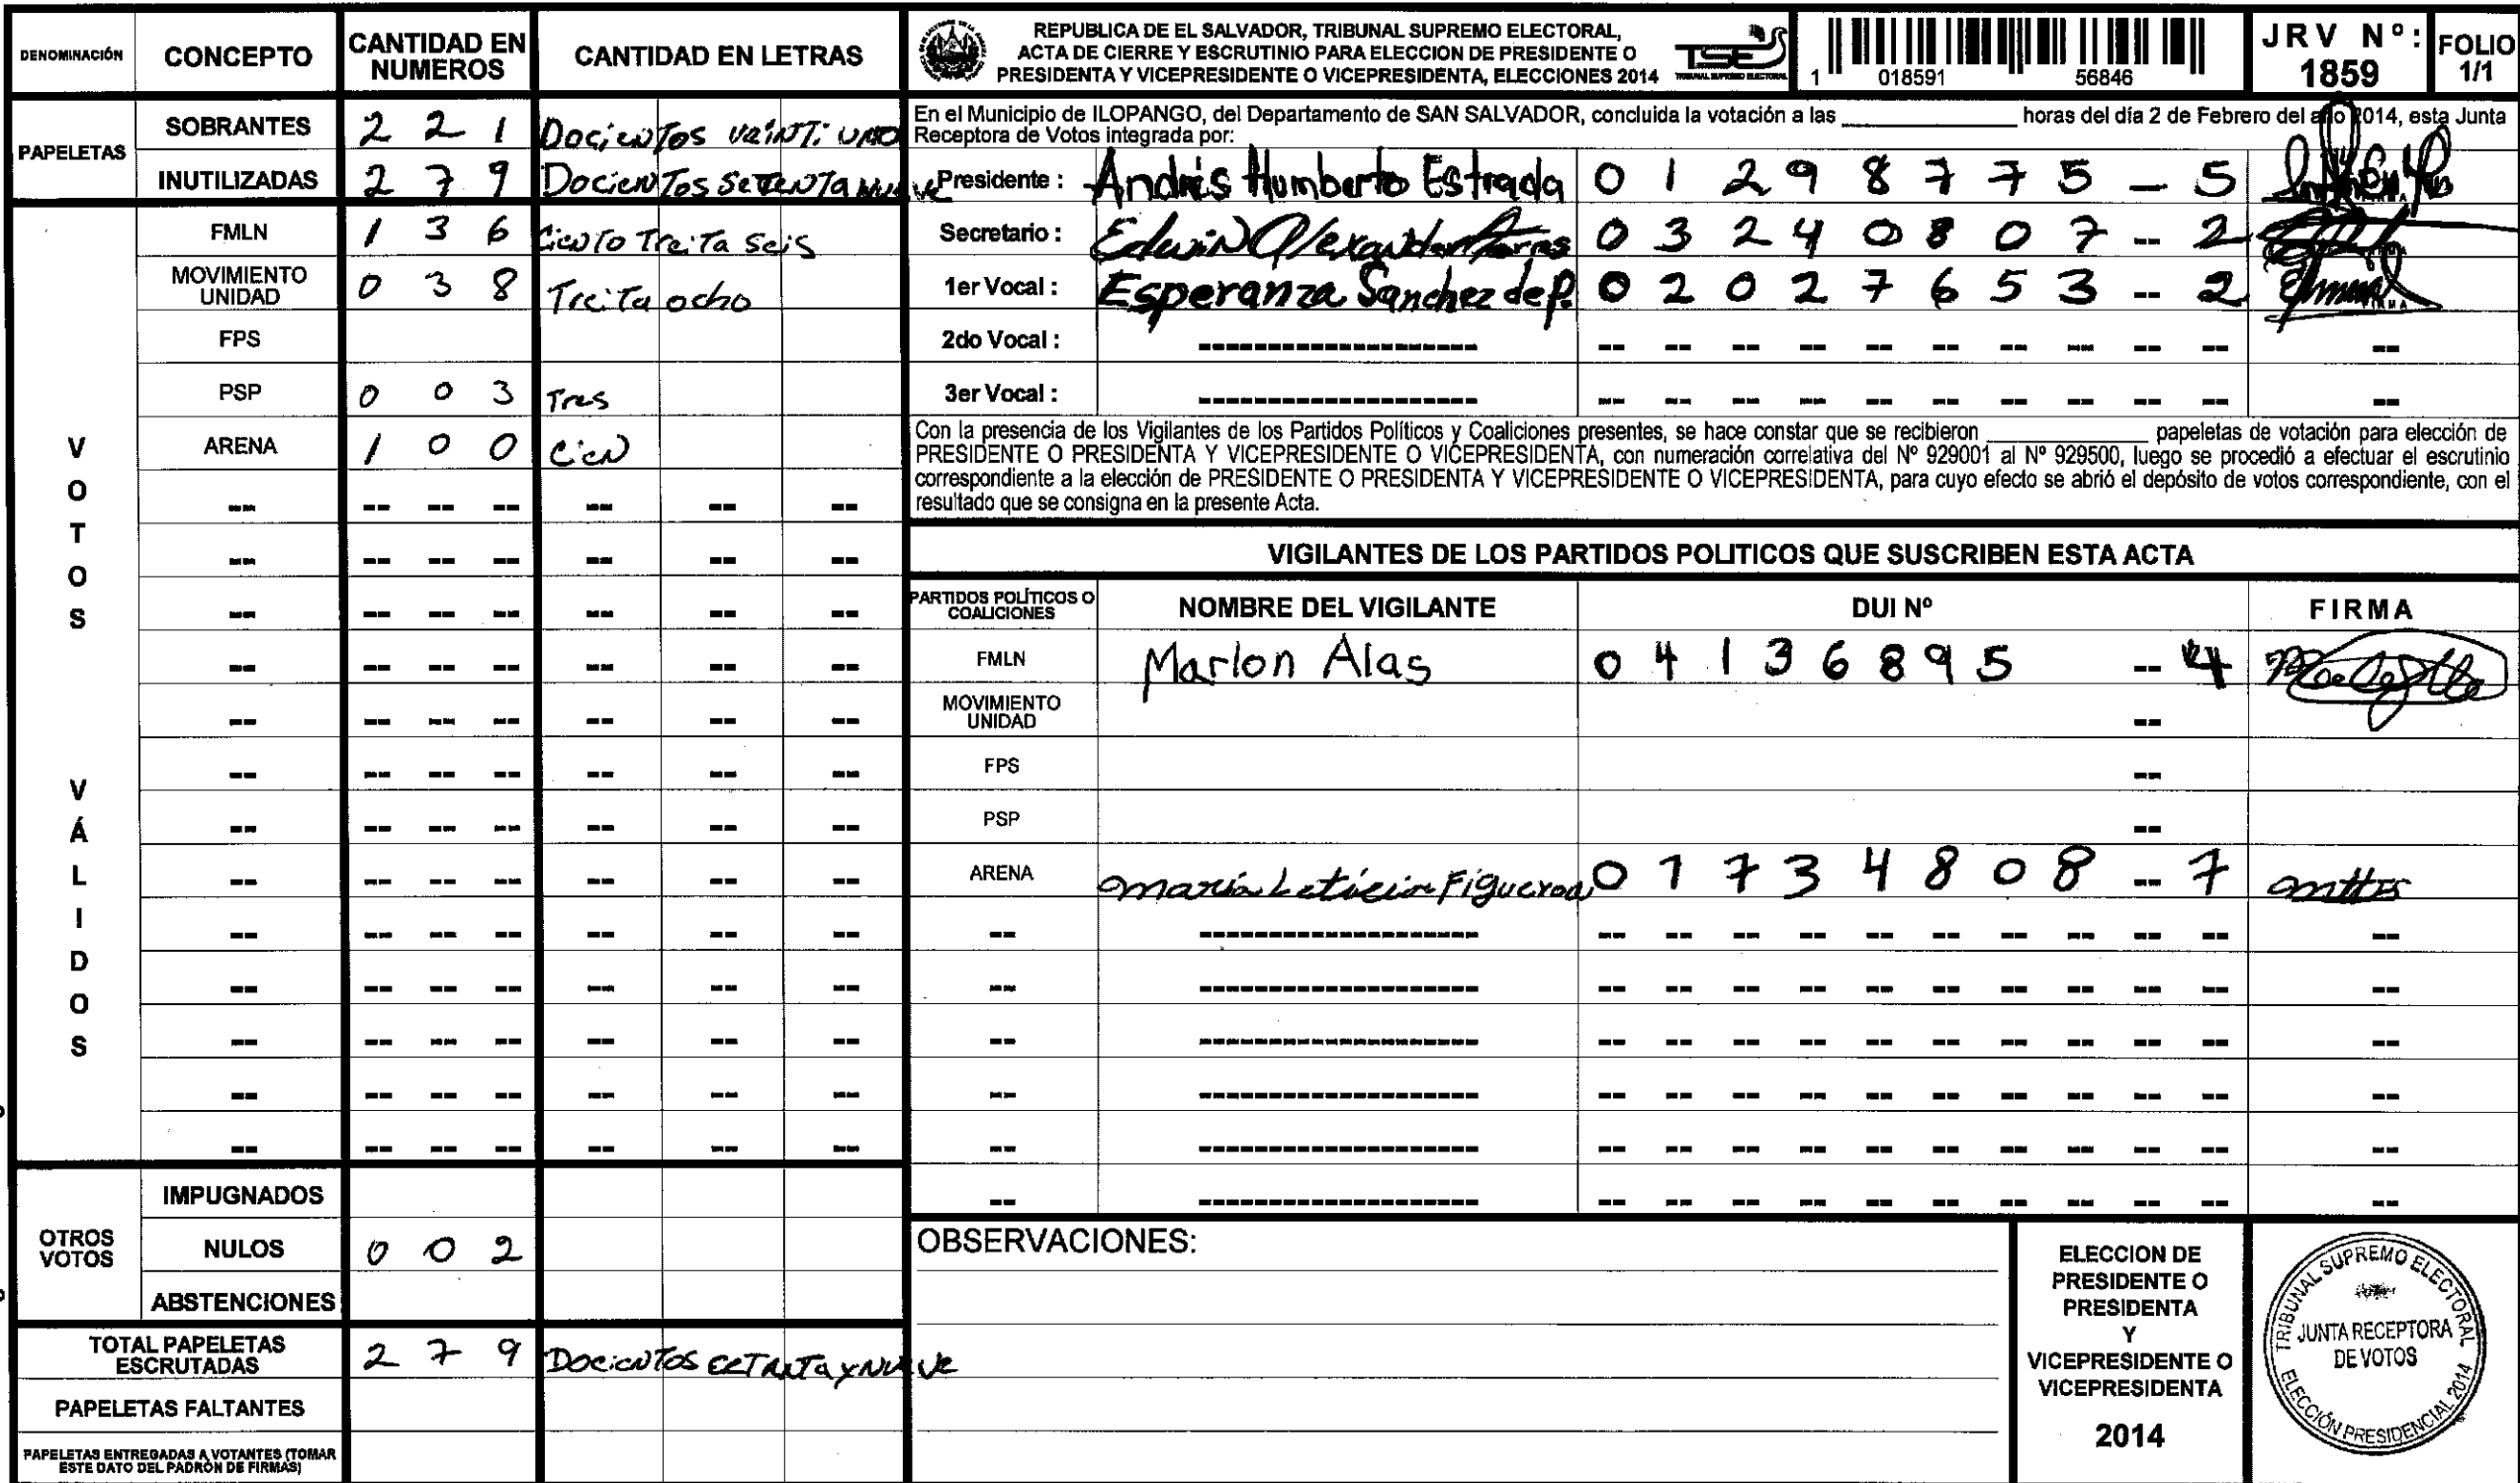 DENOMINACIÓN CONCEPTO CANTIDAD EN NUMEROS CANTIDAD EN LETRAS
PAPELETAS
SOBRANTES 2 2 1 Docientos vainti uno
INUTILIZADAS 2 7 9 Docientos setenta nueve
VOTOS VÁLIDOS
FMLN 1 3 6 Ciento Treita seis
MOVIMIENTO UNIDAD 0 3 8 Treita ocho
FPS
PSP 0 0 3 Tres
ARENA 1 0 0 Cien
OTROS VOTOS
IMPUGNADOS
NULOS 0 0 2
ABSTENCIONES
TOTAL PAPELETAS ESCRUTADAS 2 7 9 Docientos
PAPELETAS FALTANTES
PAPELETAS ENTREGADAS A VOTANTES (TOMAR
ESTE DATO DEL PADRÓN DE FIRMAS)
REPUBLICA DE EL SALVADOR, TRIBUNAL SUPREMO ELECTORAL,
ACTA DE CIERRE Y ESCRUTINIO PARA ELECCION DE PRESIDENTE O
PRESIDENTA Y VICEPRESIDENTE O VICEPRESIDENTA, ELECCIONES 2014
TSE
TRIBUNAL SUPREMO ELECTORAL
1 018591 56846
JRV Nº: 1859
FOLIO 1/1
En el Municipio de ILOPANGO, del Departamento de SAN SALVADOR, concluida la votación a las ____ horas del día 2 de Febrero del año 2014, esta Junta
Receptora de Votos integrada por:
Presidente : Andrés Humberto Estrada 0 1 2 9 8 7 7 5 - 5
Secretario : Edwin Alexander 0 3 2 4 0 8 0 7 -- 2
1er Vocal : Esperanza Sanchez de P. 0 2 0 2 7 6 5 3 -- 2
2do Vocal :
3er Vocal :
Con la presencia de los Vigilantes de los Partidos Políticos y Coaliciones presentes, se hace constar que se recibieron ____ papeletas de votación para elección de
PRESIDENTE O PRESIDENTA Y VICEPRESIDENTE O VICEPRESIDENTA, con numeración correlativa del Nº 929001 al Nº 929500, luego se procedió a efectuar el escrutinio
correspondiente a la elección de PRESIDENTE O PRESIDENTA Y VICEPRESIDENTE O VICEPRESIDENTA, para cuyo efecto se abrió el depósito de votos correspondiente, con el
resultado que se consigna en la presente Acta.
VIGILANTES DE LOS PARTIDOS POLITICOS QUE SUSCRIBEN ESTA ACTA
PARTIDOS POLÍTICOS O COALICIONES NOMBRE DEL VIGILANTE DUI Nº FIRMA
FMLN Marlon Alas 0 4 1 3 6 8 9 5 -- 4
MOVIMIENTO UNIDAD --
FPS --
PSP --
ARENA maria Leticia Figueroa 0 1 7 3 4 8 0 8 -- 7
OBSERVACIONES:
ELECCION DE
PRESIDENTE O
PRESIDENTA
Y
VICEPRESIDENTE O
VICEPRESIDENTA
2014
TRIBUNAL SUPREMO ELECTORAL
JUNTA RECEPTORA
DE VOTOS
ELECCIÓN PRESIDENCIAL 2014